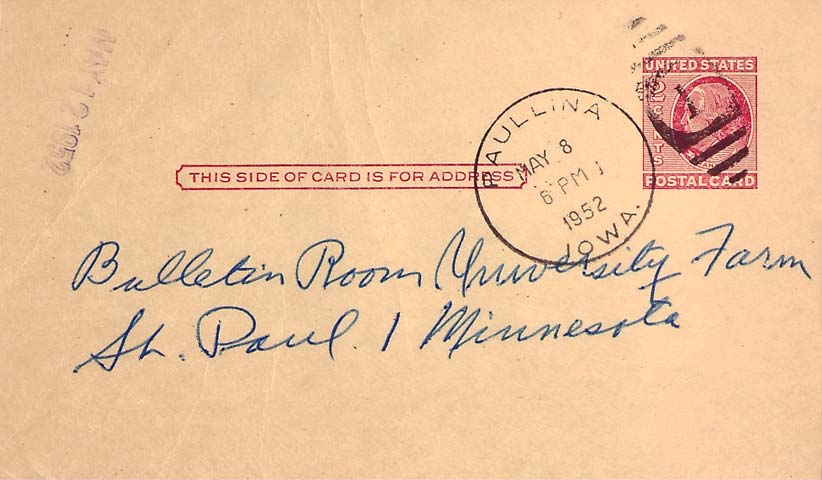 MAY 12 1952
UNITED STATES
2 CENTS
POSTAL CARD
PAULLINA
MAY 8
6 PM
1952
IOWA.
THIS SIDE OF CARD IS FOR ADDRESS
Bulletin Room University Farm
St. Paul 1 Minnesota